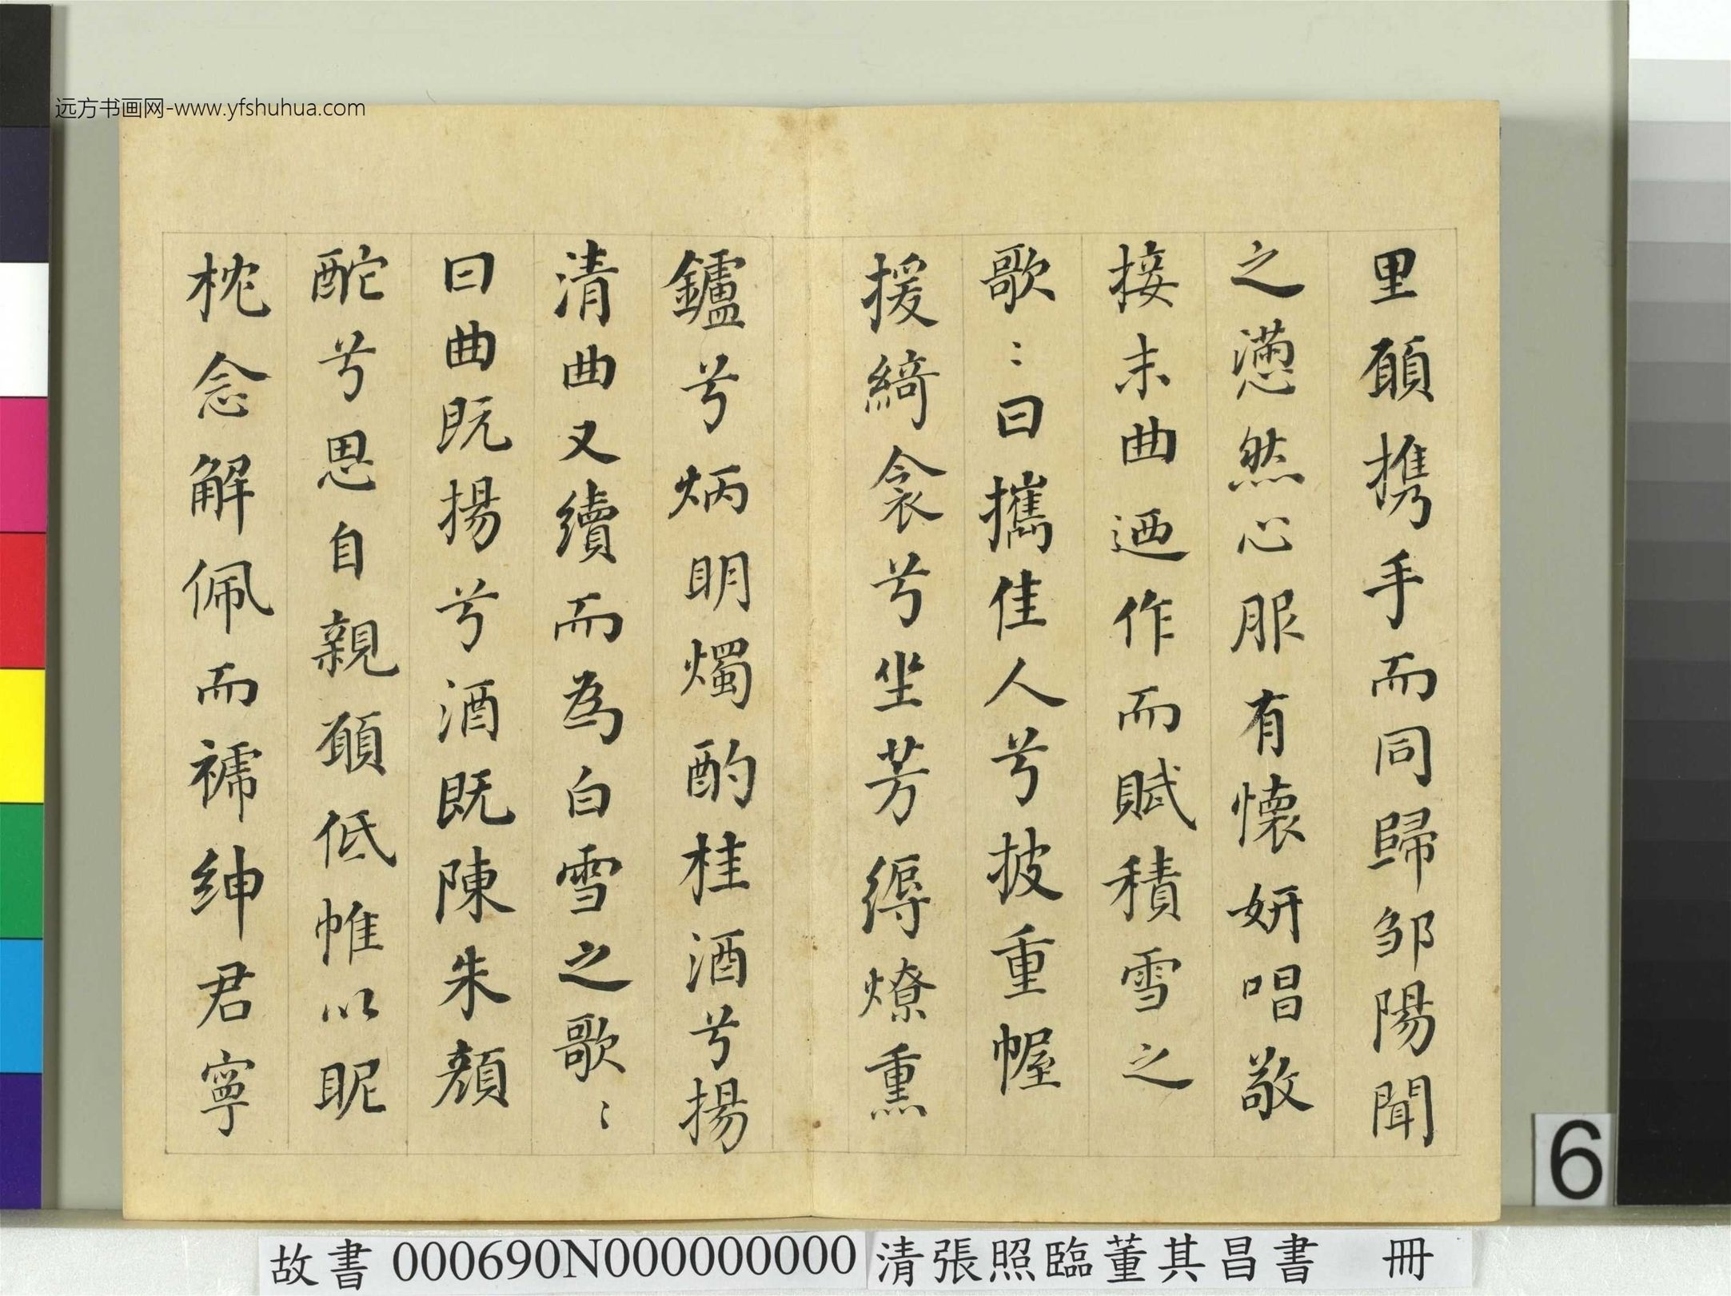 远方书画网-www.yfshuhua.com
里願携手而同歸邹陽聞
之懣然心服有懷妍唱敬
接末曲迺作而賦積雪之
歌〻曰攜佳人兮披重幄
援綺衾兮坐芳縟燎熏
鑪兮炳明燭酌桂酒兮揚
清曲又續而為白雪之歌〻
曰曲既揚兮酒既陳朱顏
酡兮思自親願低帷以昵
枕念解佩而褫紳君寧
6
故書 000690N000000000 清張照臨董其昌書 冊